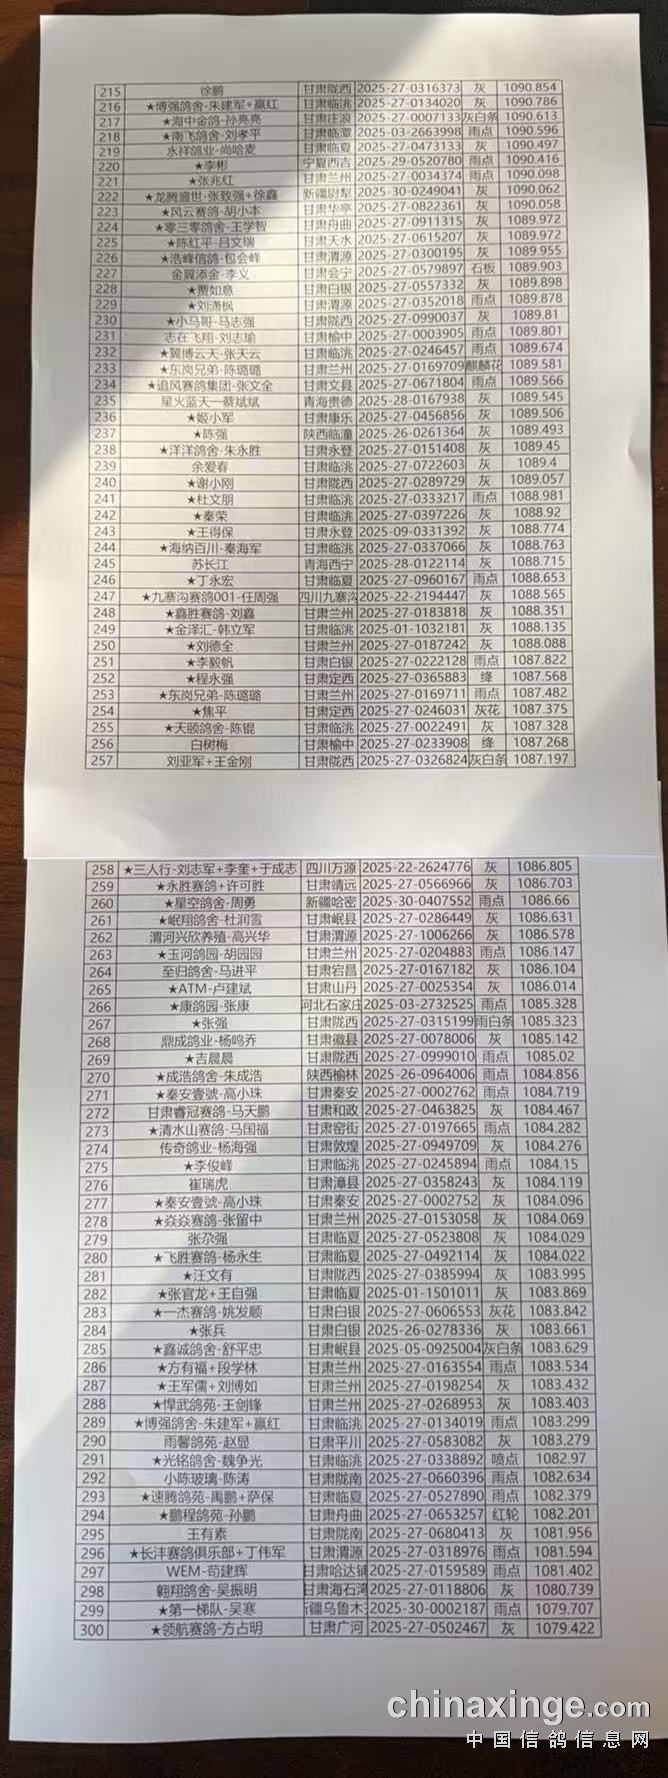 215 徐鹏 甘肃陇西 2025-27-0316373 灰 1090.854
216 ★博强鸽舍-朱建军+赢红 甘肃临洮 2025-27-0134020 灰 1090.786
217 ★海中金鸽-孙亮亮 甘肃庄浪 2025-27-0007133 灰白条 1090.613
218 ★南飞鸽舍-刘孝平 甘肃临潭 2025-03-2663998 雨点 1090.596
219 永祥鸽业-尚哈麦 甘肃临夏 2025-27-0473133 灰 1090.497
220 ★李彬 宁夏西吉 2025-29-0520780 雨点 1090.416
221 ★张兆红 甘肃兰州 2025-27-0034374 雨点 1090.098
222 ★龙腾盛世-张致强+徐鑫 新疆尉犁 2025-30-0249041 灰 1090.062
223 ★风云赛鸽-胡小本 甘肃华亭 2025-27-0822361 灰 1090.058
224 ★零三零鸽舍-王学智 甘肃舟曲 2025-27-0911315 灰 1089.972
225 ★陈红平-吕文瑞 甘肃天水 2025-27-0615207 灰 1089.972
226 ★浩峰信鸽-包会峰 甘肃渭源 2025-27-0300195 灰 1089.955
227 金翼添金-李义 甘肃会宁 2025-27-0579897 石板 1089.903
228 ★贾如意 甘肃白银 2025-27-0557332 灰 1089.898
229 ★刘潇枫 甘肃渭源 2025-27-0352018 雨点 1089.878
230 ★小马哥-马志强 甘肃陇西 2025-27-0990037 灰 1089.81
231 志在飞翔-刘志瑜 甘肃榆中 2025-27-0003905 雨点 1089.801
232 ★翼博云天-张天云 甘肃临洮 2025-27-0246457 雨点 1089.674
233 ★东岗兄弟-陈璐璐 甘肃兰州 2025-27-0169709 麒麟花 1089.581
234 ★追风赛鸽集团-张文全 甘肃文县 2025-27-0671804 雨点 1089.566
235 星火蓝天—蔡斌斌 青海贵德 2025-28-0167938 灰 1089.545
236 ★姬小军 甘肃康乐 2025-27-0456856 灰 1089.506
237 ★陈强 陕西临潼 2025-26-0261364 灰 1089.493
238 ★洋洋鸽舍-朱永胜 甘肃永登 2025-27-0151408 灰 1089.45
239 余爱春 甘肃临洮 2025-27-0722603 灰 1089.4
240 ★谢小刚 甘肃陇西 2025-27-0289729 灰 1089.057
241 ★杜文朋 甘肃临洮 2025-27-0333217 雨点 1088.981
242 ★秦荣 甘肃临洮 2025-27-0397226 灰 1088.92
243 ★王得保 甘肃永登 2025-09-0331392 灰 1088.774
244 ★海纳百川-秦海军 甘肃临洮 2025-27-0337066 灰 1088.763
245 苏长江 青海西宁 2025-28-0122114 灰 1088.715
246 ★丁永宏 甘肃临夏 2025-27-0960167 雨点 1088.653
247 ★九寨沟赛鸽001-任周强 四川九寨沟 2025-22-2194447 灰 1088.565
248 ★鑫胜赛鸽-刘鑫 甘肃兰州 2025-27-0183818 灰 1088.351
249 ★金泽汇-韩立军 甘肃临洮 2025-01-1032181 灰 1088.135
250 ★刘德全 甘肃兰州 2025-27-0187242 灰 1088.088
251 ★李毅帆 甘肃白银 2025-27-0222128 雨点 1087.822
252 ★程永强 甘肃定西 2025-27-0365883 绛 1087.568
253 ★东岗兄弟-陈璐璐 甘肃兰州 2025-27-0169711 雨点 1087.482
254 ★焦平 甘肃定西 2025-27-0246031 灰花 1087.375
255 ★天颐鸽舍-陈锟 甘肃临洮 2025-27-0022491 灰 1087.328
256 白树梅 甘肃榆中 2025-27-0233908 绛 1087.268
257 刘亚军+王金刚 甘肃陇西 2025-27-0326824 灰白条 1087.197
258 ★三人行-刘志军+李奎+于成志 四川万源 2025-22-2624776 灰 1086.805
259 ★永胜赛鸽+许可胜 甘肃靖远 2025-27-0566966 灰 1086.703
260 ★星空鸽舍-周勇 新疆哈密 2025-30-0407552 雨点 1086.66
261 ★岷翔鸽舍-杜润雪 甘肃岷县 2025-27-0286449 灰 1086.631
262 渭河兴欣养殖-高兴华 甘肃渭源 2025-27-1006266 灰 1086.578
263 ★玉河鸽园-胡园园 甘肃兰州 2025-27-0204883 雨点 1086.147
264 至归鸽舍-马进平 甘肃宕昌 2025-27-0167182 灰 1086.104
265 ★ATM-卢建斌 甘肃山丹 2025-27-0025354 灰 1086.014
266 ★康鸽园-张康 河北石家庄 2025-03-2732525 雨点 1085.328
267 ★张强 甘肃陇西 2025-27-0315199 雨白条 1085.323
268 鼎成鸽业-杨鸣乔 甘肃徽县 2025-27-0078006 灰 1085.142
269 ★吉晨晨 甘肃陇西 2025-27-0999010 雨点 1085.02
270 ★成浩鸽舍-朱成浩 陕西榆林 2025-26-0964006 雨点 1084.856
271 ★秦安壹號-高小珠 甘肃秦安 2025-27-0002762 雨点 1084.719
272 甘肃睿冠赛鸽-马天鹏 甘肃和政 2025-27-0463825 灰 1084.467
273 ★清水山赛鸽-马国福 甘肃窑街 2025-27-0197665 雨点 1084.282
274 传奇鸽业-杨海强 甘肃敦煌 2025-27-0949709 灰 1084.276
275 ★李俊峰 甘肃临洮 2025-27-0245894 雨点 1084.15
276 崔瑞虎 甘肃漳县 2025-27-0358243 灰 1084.119
277 ★秦安壹號-高小珠 甘肃秦安 2025-27-0002752 灰 1084.096
278 ★焱焱赛鸽-张留中 甘肃兰州 2025-27-0153058 灰 1084.069
279 张尕强 甘肃临夏 2025-27-0523808 灰 1084.029
280 ★飞胜赛鸽-杨永生 甘肃临夏 2025-27-0492114 灰 1084.022
281 ★汪文有 甘肃陇西 2025-27-0385994 灰 1083.995
282 ★张官龙+王自强 甘肃临夏 2025-01-1501011 灰 1083.869
283 ★一杰赛鸽-姚发顺 甘肃白银 2025-27-0606553 灰花 1083.842
284 ★张兵 甘肃白银 2025-26-0278336 灰 1083.661
285 ★鑫诚鸽舍-舒平忠 甘肃岷县 2025-05-0925004 灰白条 1083.629
286 ★方有福+段学林 甘肃兰州 2025-27-0163554 雨点 1083.534
287 ★王军儒+刘博如 甘肃兰州 2025-27-0198254 灰 1083.432
288 ★悍武鸽苑-王剑锋 甘肃兰州 2025-27-0268953 灰 1083.403
289 ★博强鸽舍-朱建军+赢红 甘肃临洮 2025-27-0134019 雨点 1083.299
290 雨馨鸽苑-赵显 甘肃平川 2025-27-0583082 灰 1083.279
291 ★光铭鸽舍-魏争光 甘肃临洮 2025-27-0338892 喷点 1082.97
292 小陈玻璃-陈涛 甘肃陇南 2025-27-0660396 雨点 1082.634
293 ★速腾鸽苑-禹鹏+萨保 甘肃临夏 2025-27-0527890 雨点 1082.379
294 ★鹏程鸽苑-孙鹏 甘肃舟曲 2025-27-0653257 红轮 1082.201
295 王有素 甘肃陇南 2025-27-0680413 灰 1081.956
296 ★长沣赛鸽俱乐部+丁伟军 甘肃渭源 2025-27-0318976 雨点 1081.594
297 WEM-苟建辉 甘肃哈达铺 2025-27-0159589 雨点 1081.402
298 翱翔鸽舍-吴振明 甘肃海石湾 2025-27-0118806 灰 1080.739
299 ★第一梯队-吴寒 新疆乌鲁木齐 2025-30-0002187 雨点 1079.707
300 ★领航赛鸽-方占明 甘肃广河 2025-27-0502467 灰 1079.422
chinaxinge.com
中国信鸽信息网